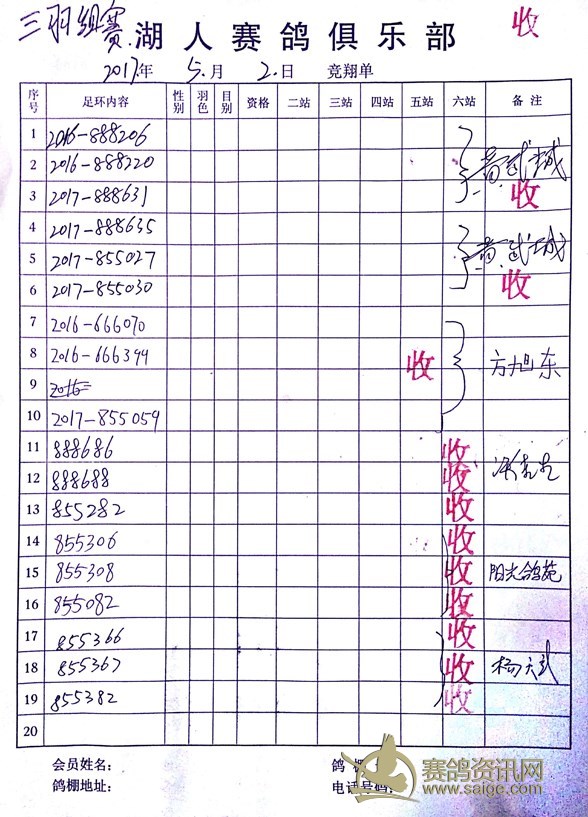 三羽组赛 湖人赛鸽俱乐部 收
2017年 5月 2日 竞翔单
序号 足环内容 性别 羽色 目别 资格 二站 三站 四站 五站 六站 备注
1 2016-888206
2 2016-888220 黄武城
3 2017-888631 收
4 2017-888635
5 2017-855027 黄武城
6 2017-855030 收
7 2016-666070
8 2016-666344 收 方旭东
9 2016
10 2017-855059
11 888686 收
12 888688 收
13 855282 收
14 855306 收
15 855308 收 阳光鸽苑
16 855082 收
17 855366 收
18 855367 收
19 855382 收
20
会员姓名： 鸽棚
鸽棚地址： 电话号码：
赛鸽资讯网
www.saige.com